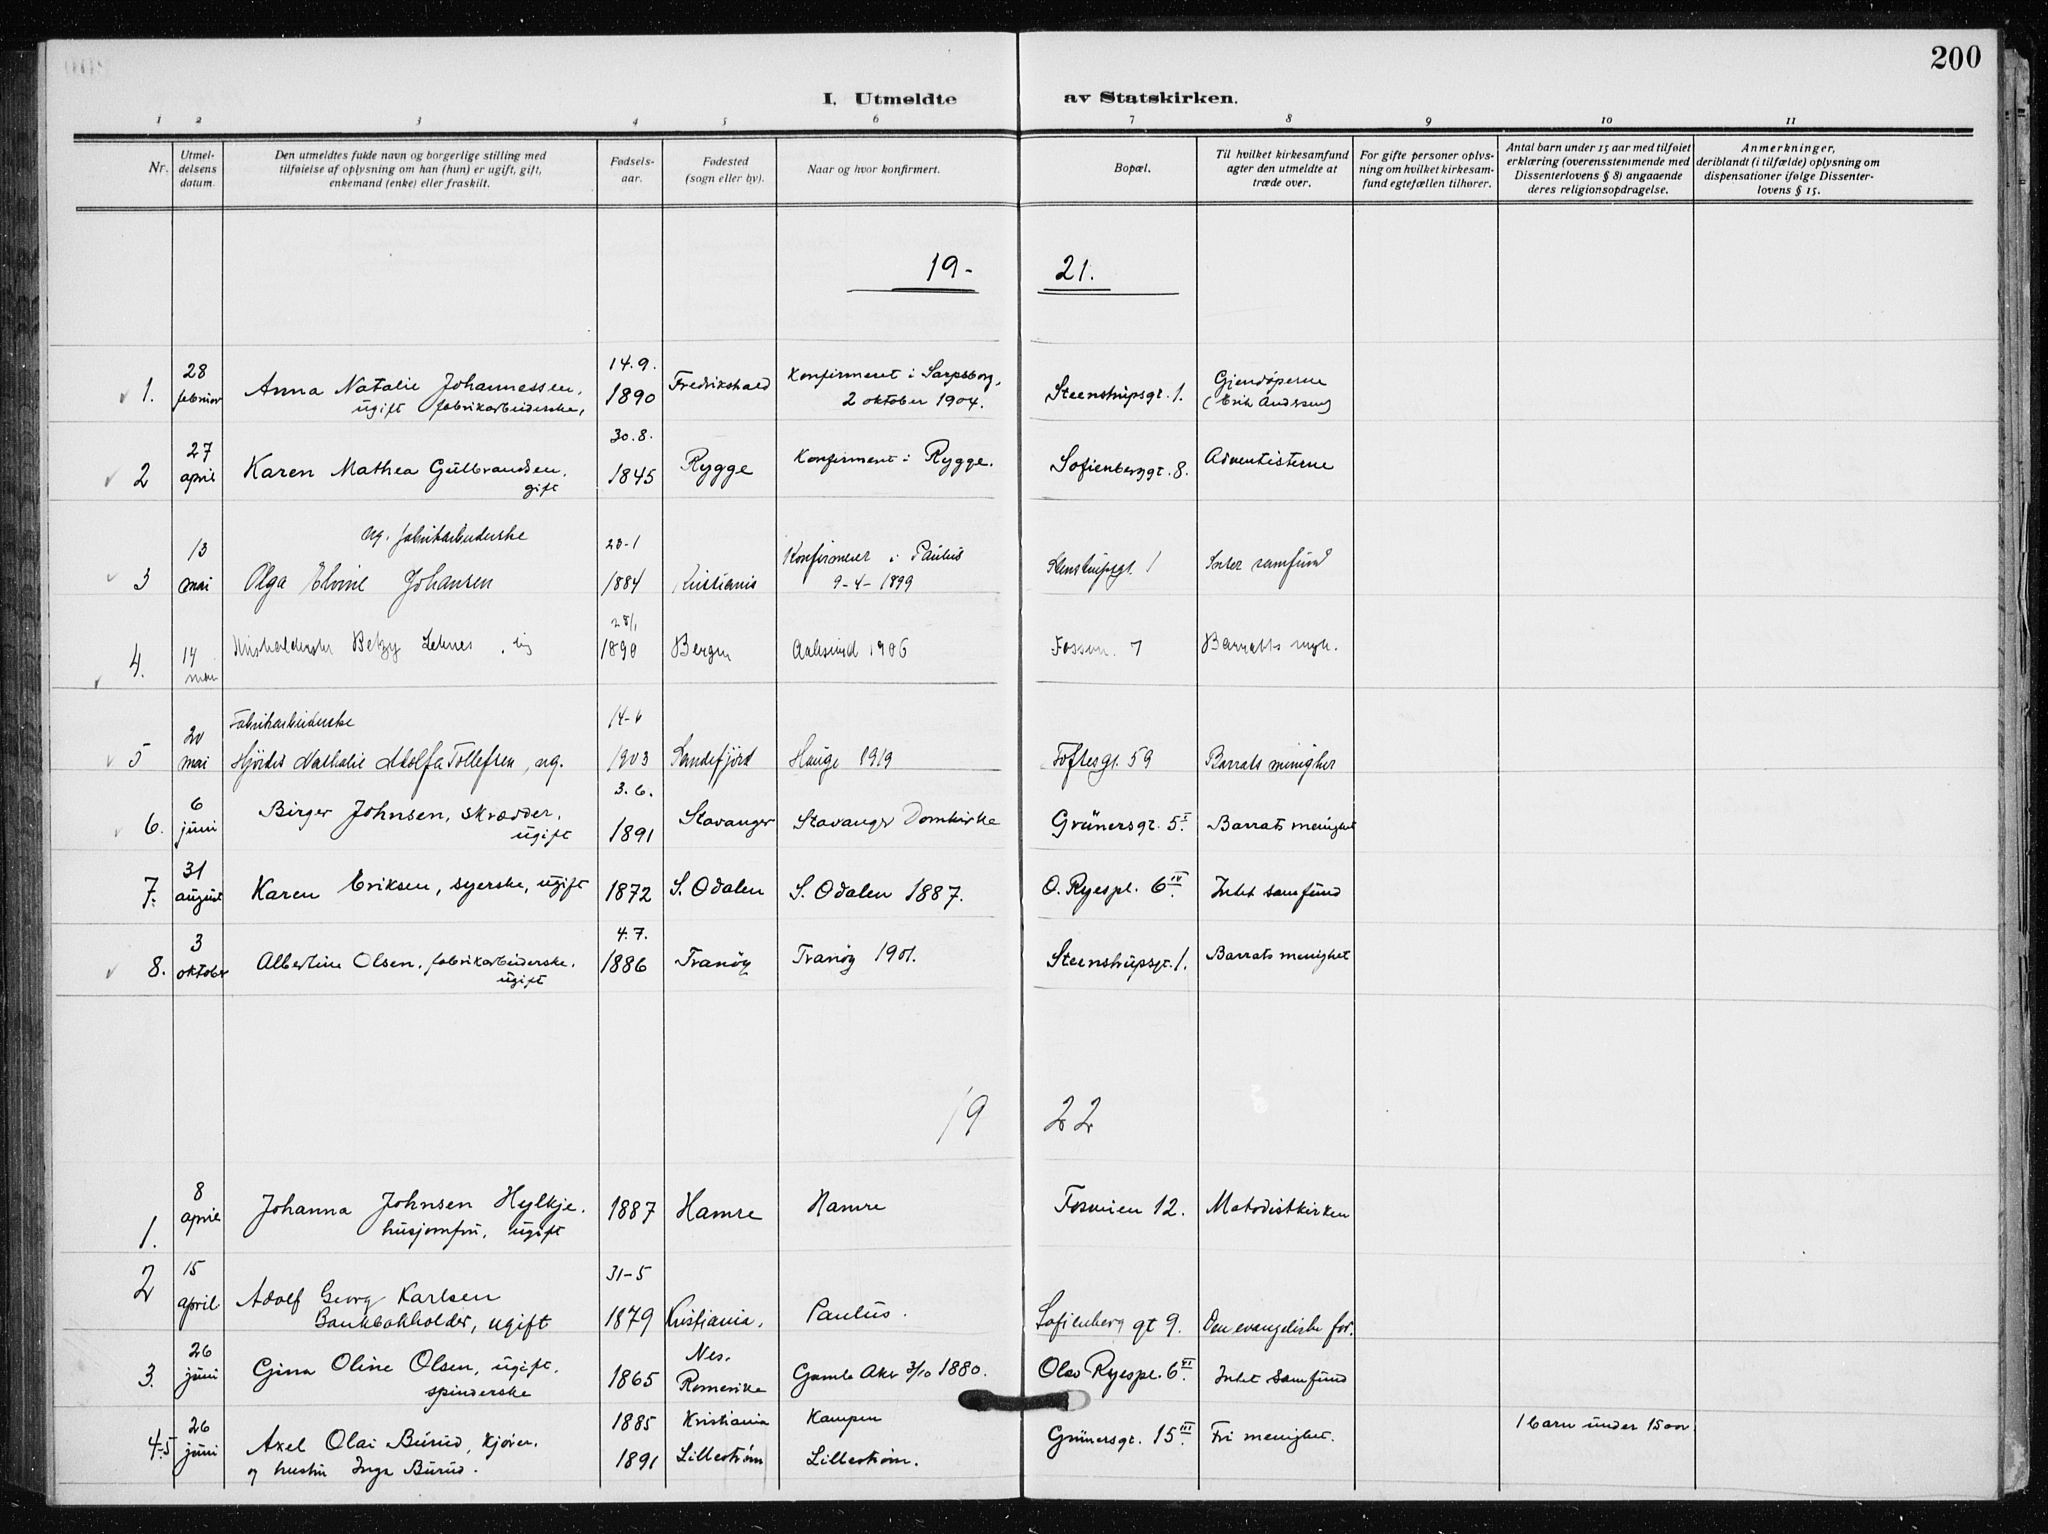 200
I. Utmeldte av Statskirken.
1 2 3 4 5 6 7 8 9 10 11
Nr.
Utmel-
delsens
datum.
Den utmeldtes fulde navn og borgerlige stilling med
tilføielse af oplysning om han (hun) er ugift, gift,
enkemand (enke) eller fraskilt.
Fødsels-
aar.
Fødested
(sogn eller by).
Naar og hvor konfirmert.
Bopæl.
Til hvilket kirkesamfund
agter den utmeldte at
træde over.
For gifte personer oplys-
ning om hvilket kirkesam-
fund egtefællen tilhører.
Antal barn under 15 aar med tilføiet
erklæring (overensstemmende med
Dissenterlovens § 8) angaaende
deres religionsopdragelse.
Anmerkninger,
deriblandt (i tilfælde) oplysning om
dispensationer ifølge Dissenter-
lovens § 15.
19- 21.
1. 28 februar Anna Natalie Johannessen, ugift fabrikarbeiderske, 14.9. 1890 Fredrikshald Konfirmeret i Sarpsborg, 2 oktober 1904. Steenstrupsgt. 1. Gjendøperne (Erik Andersen)
2 27 april Karen Mathea Gulbrandsen. gift 30.8. 1845 Rygge Konfirmeret i Rygge. Sofienberggt. 8. Adventisterne
3 13 mai ug. fabrikarbeiderske Olga Elvine Johansen 1884 Kristiania Konfirmeret i Paulus 9-4-1899 Stenstrupsgt. 1 Intet samfund
4. 14 mai Betzy 1890 Bergen Aalesund 1906 7 Barratts
5 20 mai Fabrikarbeiderske Hjördis Nathalie Adolfa Tollefsen, ug. 14-6 1903 Sandefjord Hauge 1919 Toftesgt. 59 Barrats menighet
6. 6 juni Birger Johnsen, skrædder. ugift 3.6. 1891 Stavanger Stavanger Domkirke Grünersgt. 5 I. Barrats menighet
7. 31 august Karen Eriksen, syerske, ugift 1872 S. Odalen S. Odalen 1887. O. Ryespl. 6 IV. Intet samfund
8. 3 oktober Albertine Olsen. fabrikarbeiderske. ugift 4.7. 1886 Tranöy Tranöy 1901. Steenstrupsgt. 1. Barrats menighet
19 22
1. 8 april Johanna Johnsen Hylkje. husjomfru, ugift 1887 Hamre Hamre 12. Metodistkirken
2 15 april Adolf Georg Karlsen Bankbokholder, ugift 31-5 1879 Kristiania. Paulus. Sofienberg gt 9. Den evangeliske for.
3. 26 juni Gina Oline Olsen, ugift. spinderske 1865 Nes. Romerike Gamle Aker 3/10 1880. Olav Ryespl. 6 VI. Intet samfund
4-5 26 juni Axel Olai Burud, kjører. og hustru Inga Burud. 1885 1891 Kristiania Lillestrøm Kampen Lillestrøm. Grünersgt. 15 III. Fri menighet. 1 barn under 15 aar